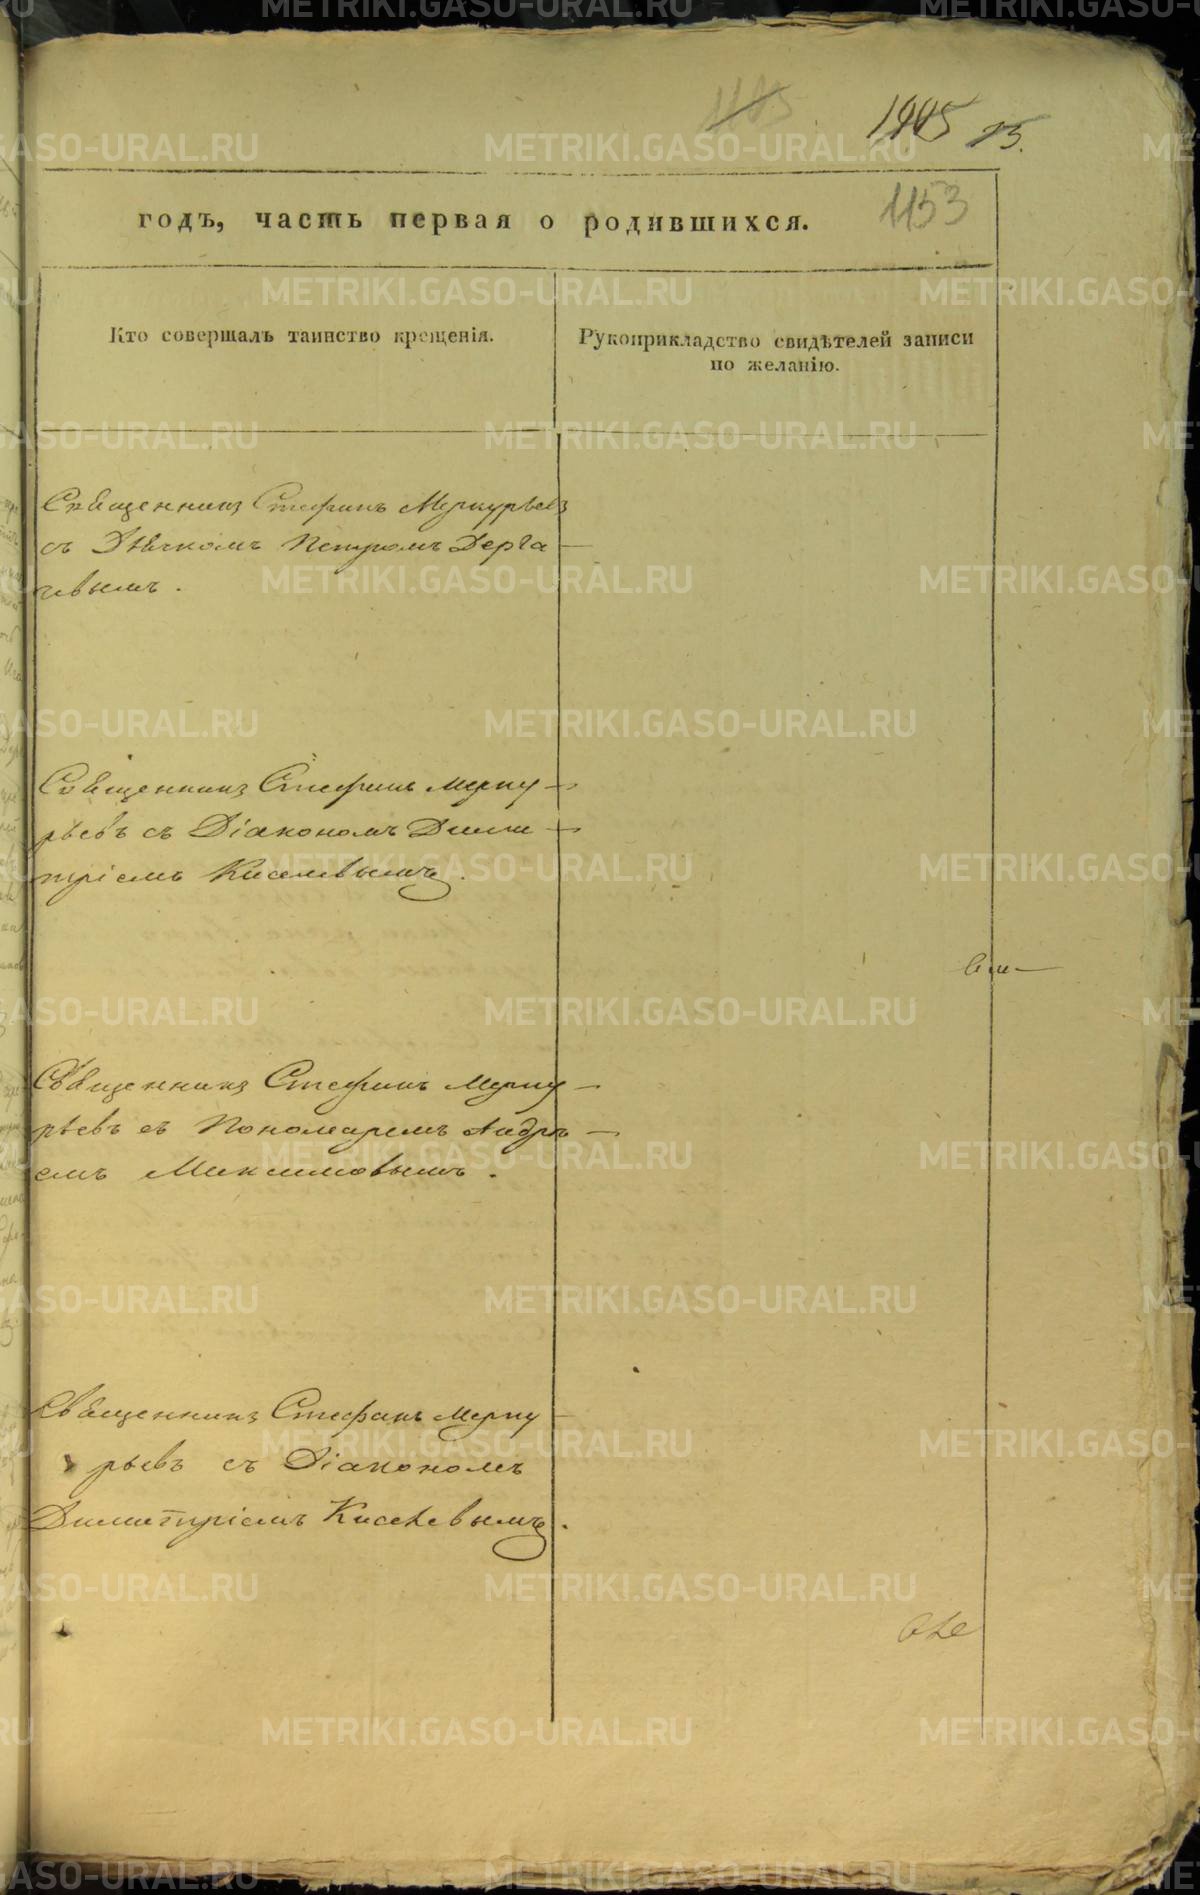 1105
1105 15.
годъ, часть первая о родившихся.
1153
Кто совершалъ таинство крещенія.
Рукоприкладство свидѣтелей записи
по желанію.
Священникъ Стефанъ Меркурьевъ
съ Дьячкомъ Петромъ Дерга
чевымъ.
Священникъ Стефанъ Мерку
рьевъ съ Діакономъ Дими
тріемъ Киселевымъ.
Священникъ Стефанъ Мерку
рьевъ съ Пономаремъ Андре
емъ Максимовымъ.
Священникъ Стефанъ Мерку
рьевъ съ Діакономъ
Димитріемъ Киселевымъ.
METRIKI.GASO-URAL.RU